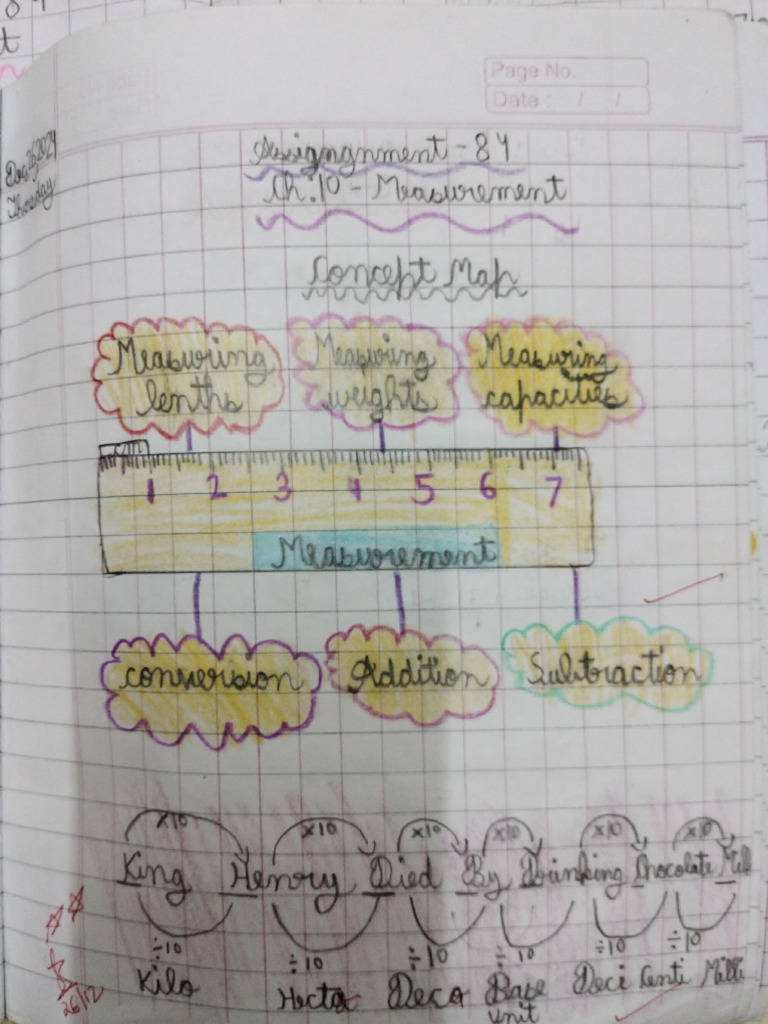 Page No.
Date : / /
Dec 26, 2024
Thursday
Assigngnment - 84
Ch.10 - Measurement
Concept Map
Measuring lenths
Measuring weights
Measuring capacities
cm
1 2 3 4 5 6 7
Measurement
conversion
Addition
Subtraction
x10 x10 x10 x10 x10 x10
King Henry Died By Drinking Chocolate
÷10 ÷10 ÷10 ÷10 ÷10 ÷10
Kilo Hecta Deca Base unit Deci Centi Milli
26/12